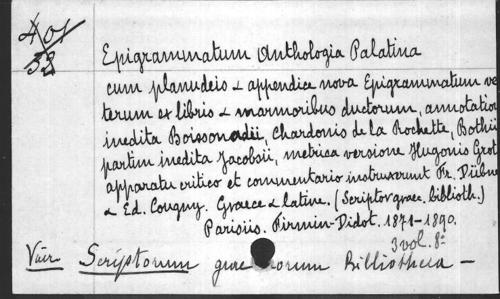 401
32
Epigrammatum Anthologia Palatina
cum planudeis & appendice nova Epigrammatum ve
terum ex libris & marmoribus ductorum, annotation
inedita Boissonadii, Chardonis de la Rochette, Bothii
partim inedita Jacobsii, metrica versione Hugonis Grot
apparatu critico et commentario instruxerunt Fr. Dübne
& Ed. Cougny. Graece & latine. (Scriptor graec. biblioth.)
Parisiis. Firmin-Didot. 1871-1890.
3 vol. 8º
Voir Scriptorum grae orum Bibliotheca -